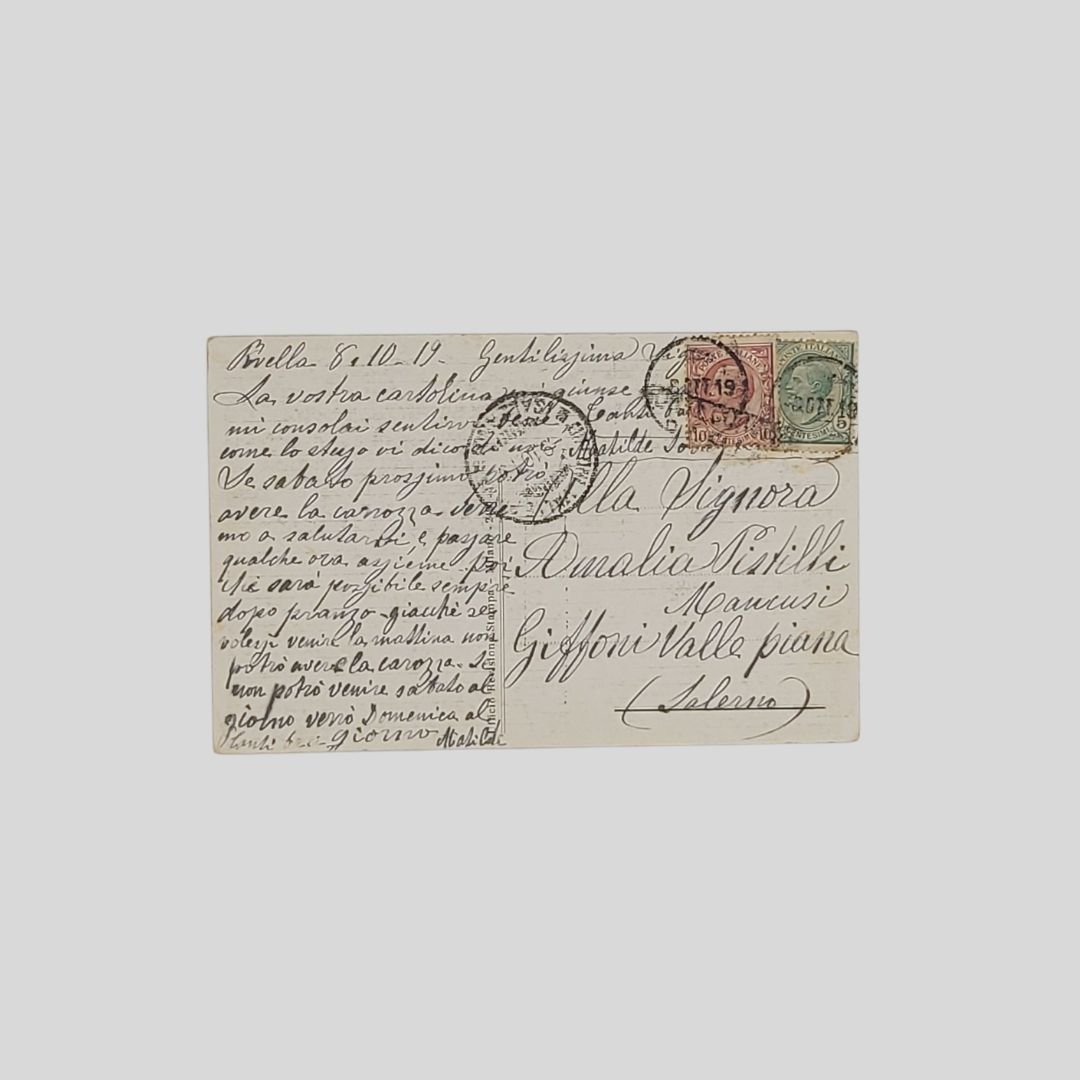 8.10-19- Gentilissima
La vostra cartolina mi giunse
mi consolai sentirvi bene
come lo stesso vi dico di noi
Se sabato prossimo potrò
avere la carrozza verre
mo a salutarvi, e passare
qualche ora assieme poi
che sarà possibile sempre
dopo pranzo giacchè se
volessi venire la mattina non
potrò avere la carozza. Se
non potrò venire sabato al
giorno verrò Domenica al
giorno
Tanti Matilde
Tanti baci
Matilde
Alla Signora
Amalia Pistilli
Mancusi
Giffoni Valle piana
(Salerno)
Ufficio Revisione Stampa - Milano -
POSTE ITALIANE
10 CENTESIMI 10
8 OTT.19
POSTE ITALIANE
CENTESIMI 5
8 OTT 19